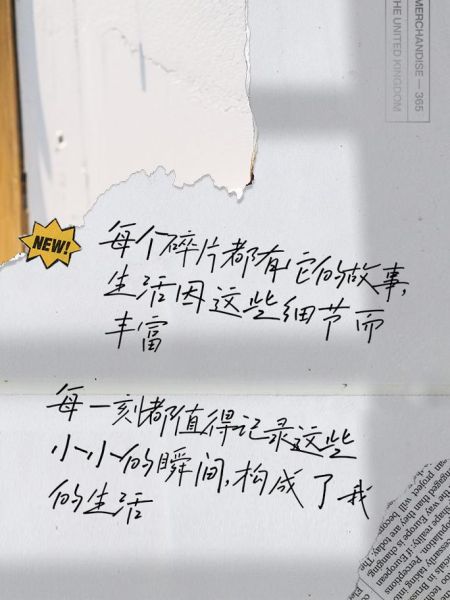 MERCHANDISE — 365
THE UNITED KINGDOM
NEW!
每个碎片都有它的故事,
生活因这些细节而
丰富
每一刻都值得记录这些
小小的瞬间,构成了我
的生活